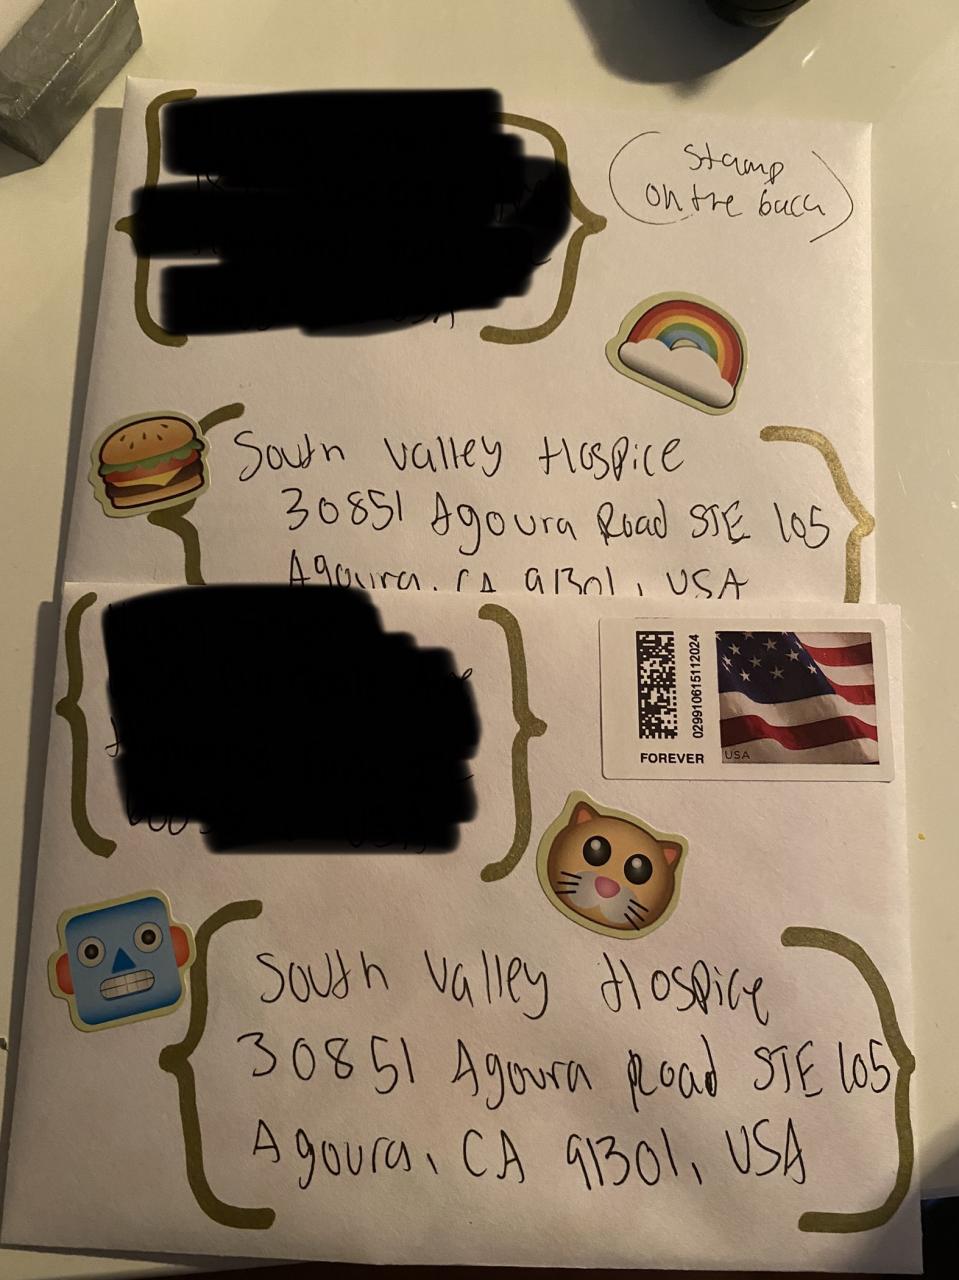 (Stamp
on the back)
South Valley Hospice
30851 Agoura Road STE 105
Agoura, CA 91301, USA
FOREVER
029910615112024
USA
South Valley Hospice
30851 Agoura Road STE 105
Agoura, CA 91301, USA